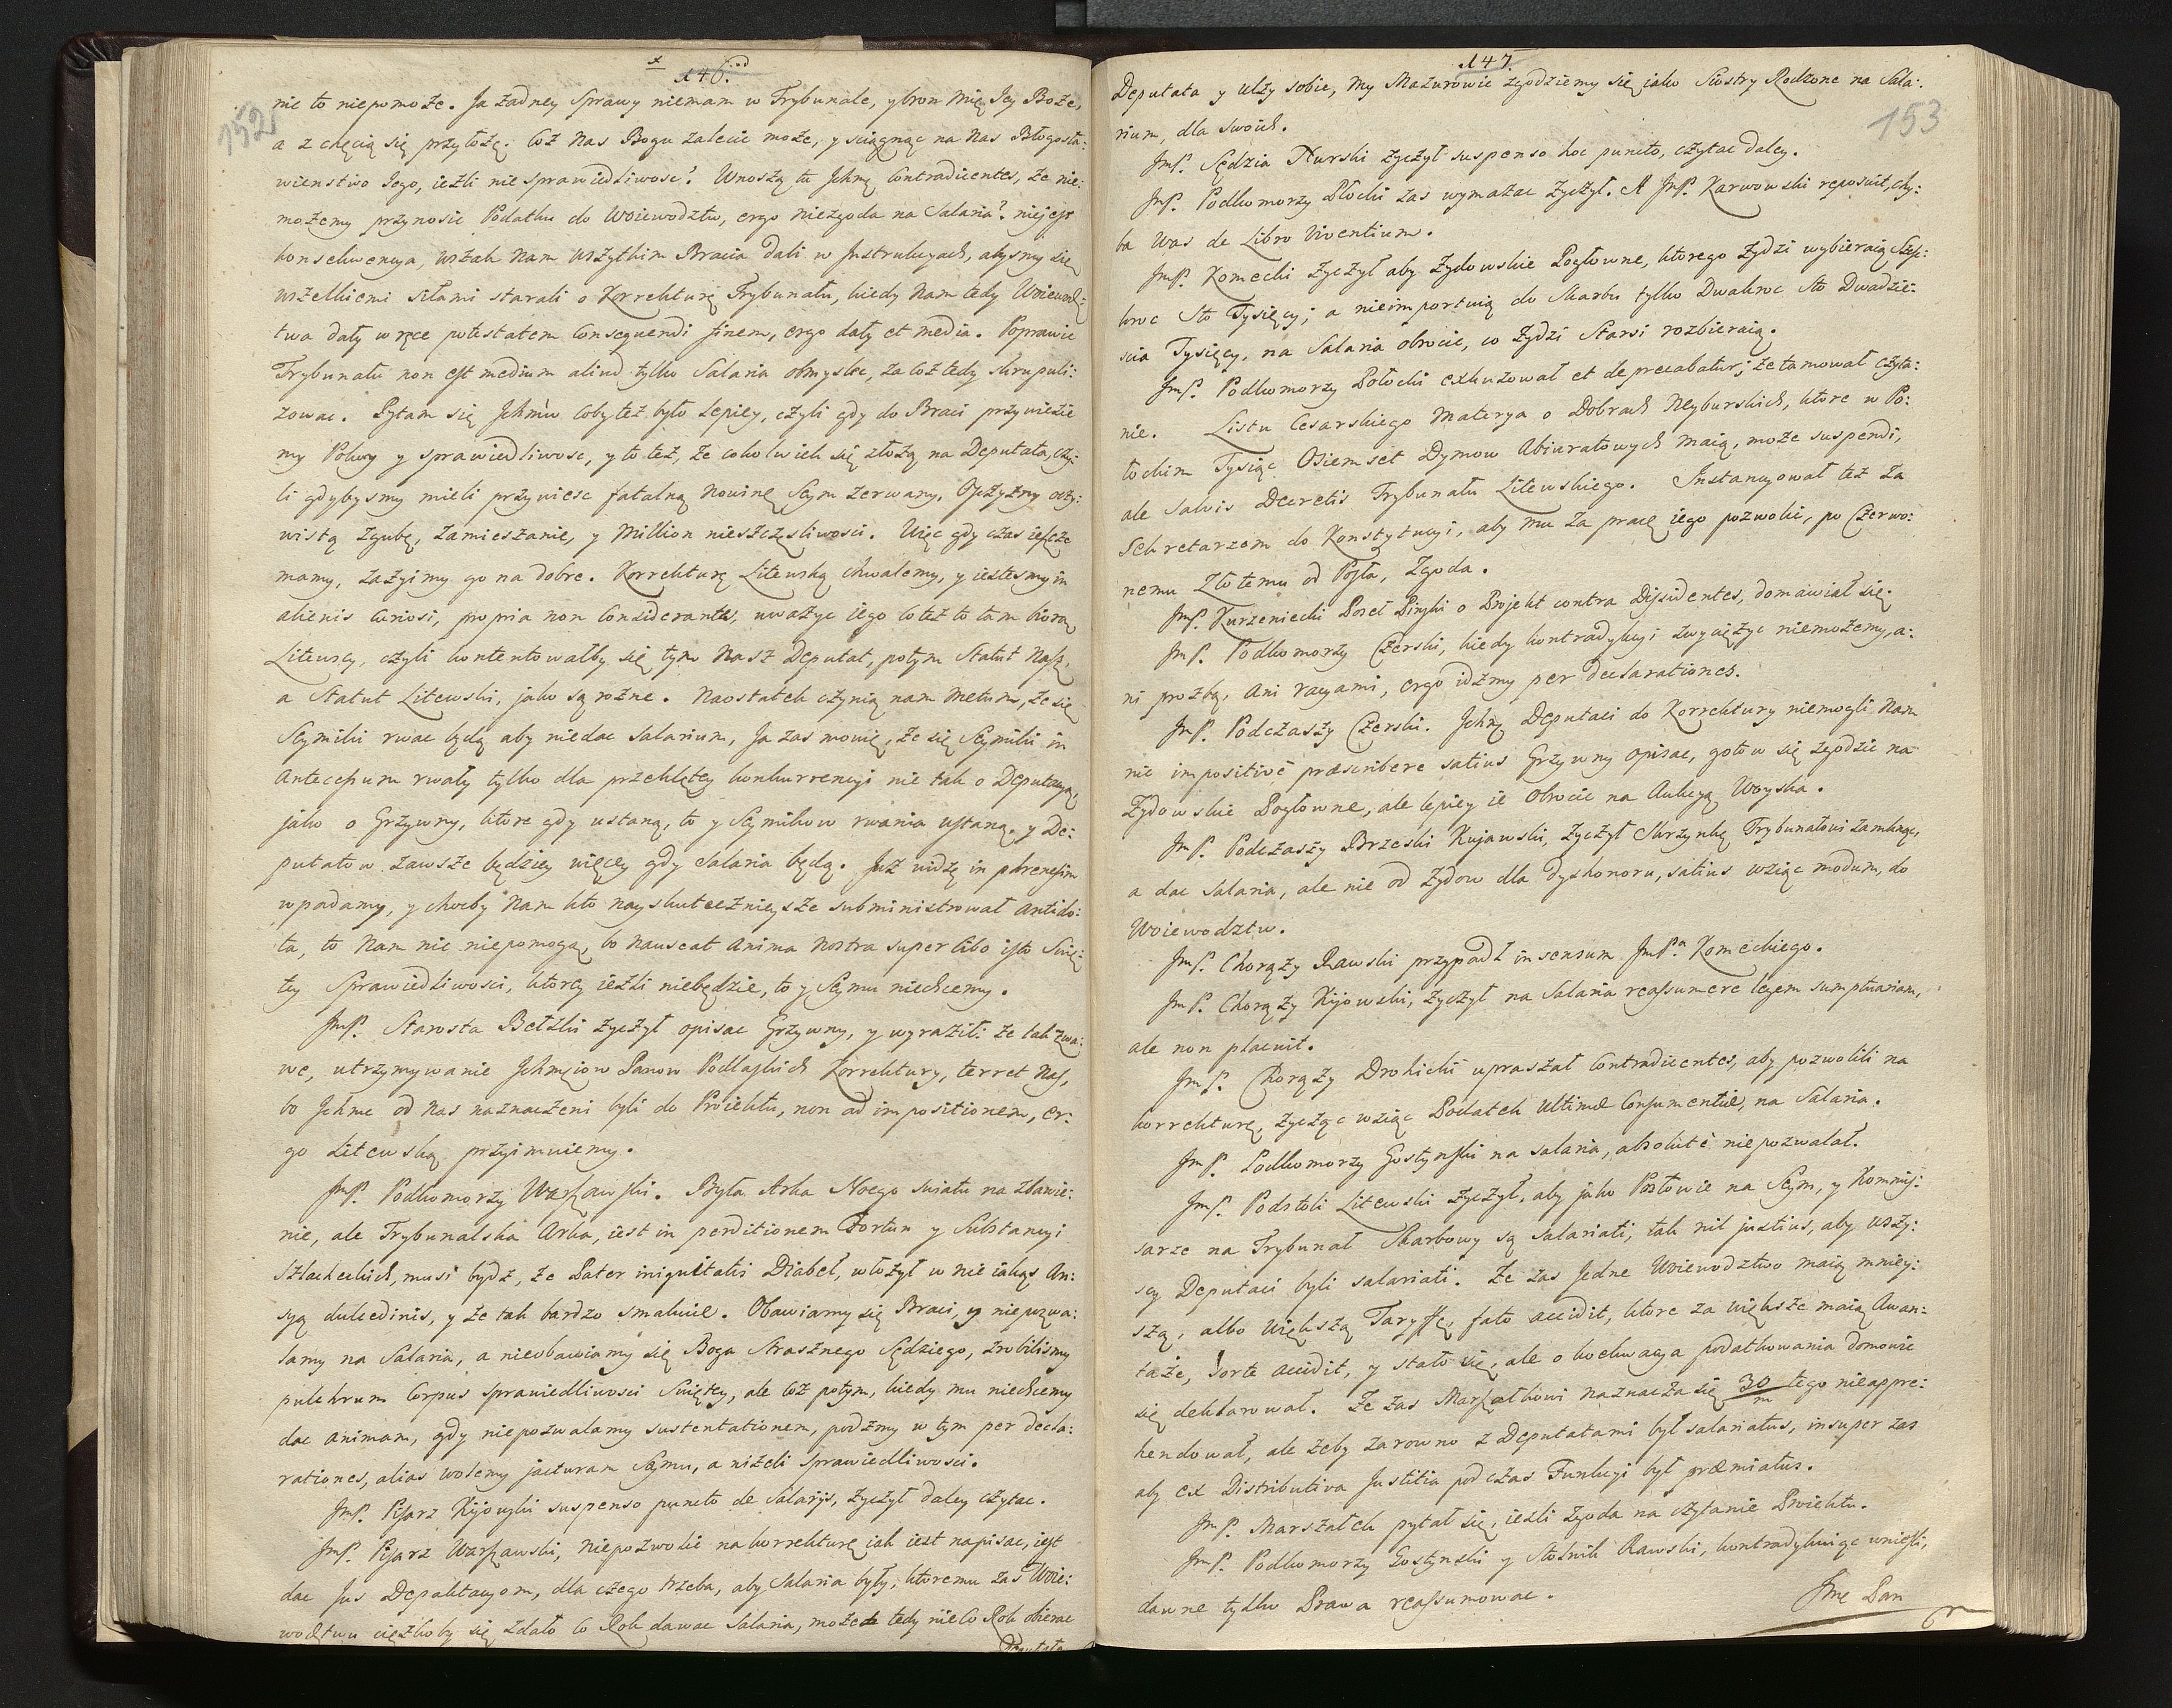 146.
152
nic to niepomoże. Ja żadney Sprawy niemam w Trybunale, y broń mię Jey Boże,
a z chęcią się przyłożę. Coż nas Bogu zalecic może, y sciągnąc na nas Błogosła:
wienstwo Jego, ieżli nie sprawiedliwosc? Wnoszą tu Jchmę Contradicentes, że nie:
możemy przynosic Podatku do Woiewodztw, ergo niezgoda na Salaria? niejest
konsekwencya, wszak nam wszytkim Bracia dali w Jnstrukcyach, abysmy się
wszelkiemi siłami starali o Korrekturę Trybunału, kiedy nam tedy Woiewodz:
twa dały w ręce potestatem Consequendi finem, ergo dały et media. Poprawic
Trybunału non est medium aliud tylko Salaria obmyslec, za coż tedy skrupuli:
zowac. Pytam się Jchmcw coby też było lepiey, czyli gdy do Braci przyniesie
my Pokoy y sprawiedliwosc, y to też, że cokolwiek się złożą na Deputata, czy:
li gdybysmy mieli przyniesc fatalną nowinę Seym zerwany, Oyczyzny oczy:
wistą zgubę, zamieszanie, y Million nieszczęsliwosci. Więc gdy czas ieszcze
mamy, zażyimy go na dobre. Korrekturę Litewską chwalemy, y iestesmy in
alienis curiosi, propria non Considerantes, uważyc iego coteż to tam biorą
Litewscy, czyli kontentowałby się tym nasz Deputat, potym Statut nasz,
a Statut Litewski, jako są rożne. Naostatek czynią nam metum, że się
Seymiki rwac będą aby niedac Salarium, Ja zas mowię, że się Seymiki in
antecessum rwały tylko dla przeklętey konkurrencyi nie tak o Deputacyą,
jako o Grzywny, ktore gdy ustaną, to y Seymikow rwania ustaną, y De:
putatow zawsze będziey więcey gdy Salaria będą. Już widzę in phrenesim
wpadamy, y choćby nam kto nayskutecznieysze subministrował antido:
ta, to nam nic niepomogą, bo nauseat anima nostra super Cibo isto Swię:
tey Sprawiedliwosci, ktorey ieżli niebędzie, to y Seymu niechcemy.
JmP. Starosta Bełzki życzył opisac Grzywny, y wyrazili że tak zwa:
we, utrzymywanie Jchmciow Panow Podlaskich Korrektury, terret nas,
bo Jchmc od nas naznaczeni byli do Proiektu, non ad impositionem, er:
go Litewską przyimuiemy.
JmP. Podkomorzy Warszawski. Była Arka Noego swiatu na zbawie:
nie, ale Trybunalska Arka, iest in perditionem Fortun y Substancyi
szlacheckich, musi bydź, że Pater iniquitatis Diabeł, włożył w nie iakąs An:
syą dulcedinis, y że tak bardzo smakuie. Obawiamy się Braci, y niepozwa:
lamy na Salaria, a nieobawiamy się Boga Strasznego Sędziego, zrobilismy
pulchrum Corpus sprawiedliwosci Swiętey, ale coż potym, kiedy mu niechcemy
dac animam, gdy niepozwalamy sustentationem, podźmy w tym per decla:
rationes, alias wolemy jacturam Seymu, a niżeli Sprawiedliwosci.
JmP. Pisarz Kijowski suspenso puncto de Salarijs, życzył daley czytac.
JmP. Pisarz Warszawski, niepozwolic na korrekturę iak iest napisac, iest
dac Jus Deputacyom, dla czego trzeba, aby Salaria były, ktoremu zas Woie:
wodztwu ciężkoby się zdało co Rok dawac Salaria, może tedy nie co Rok obierac
Deputata
147.
153
Deputata y ulży sobie, my Mazurowie zgodziemy się jako Siostry Rodzone na Sala:
rium, dla swoich.
JmP. Sędzia Nurski życzył suspenso hoc puncto, czytac daley.
JmP. Podkomorzy Płocki zas wymazac życzył. A JmP. Karwowski reposuit, chy:
ba was de Libro viventium.
JmP. Komecki życzył aby Żydowskie Pogłowne, ktorego Żydzi wybieraią Sześ:
kroc Sto Tysięcy, a nieimportuią do Skarbu tylko Dwakroc Sto Dwadzie:
scia Tysięcy, na Salaria obrocic, co Żydzi Starsi rozbieraią.
JmP. Podkomorzy Połocki exkuzował et deprecabatur, że tamował czyta:
nie. Listu Cesarskiego Materya o Dobrach Neyburskich, ktore w Po:
łockim Tysiąc Osiemset Dymow Abiuratowych maią, może suspendi,
ale Salvis Decretis Trybunału Litewskiego. Instancyował też za
Sekretarzem do Konstytucyi, aby mu za pracę iego pozwolic, po Czerwo:
nemu Złotemu od Posła, Zgoda.
JmP. Kurzeniecki Poseł Pinski o Projekt contra Dissidentes, domawiał się.
JmP. Podkomorzy Czerski, kiedy kontradykcyi zwyciężyc niemożemy, a:
ni prozbą, ani racyami, ergo idźmy per declarationes.
JmP. Podczaszy Czerski. Jchmę Deputaci do Korrektury niemogli nam
nic impositivè præscribere satius Grzywny opisac, gotow się zgodzic na
Żydowskie Pogłowne, ale lepiey ie obrocic na Aukcyą Woyska.
JmP. Podczaszy Brzeski Kujawski, życzył Skrzynkę Trybunałowi zamknąc,
a dac Salaria, ale nie od Żydow dla dyshonoru, satius wziąc modum, do
Woiewodztw.
JmP. Chorąży Rawski przypadł in sensum JmPa Komeckiego.
JmP. Chorąży Kijowski, życzył na Salaria reassumere legem sumptuariam,
ale non placuit.
JmP. Chorąży Drohicki upraszał Contradicentes, aby pozwolili na
korrekturę, życząc wziąc Podatek Ultimæ Consumentiæ, na Salaria.
JmP. Podkomorzy Gostynski na salaria, absolutè niepozwalał.
JmP. Podstoli Litewski życzył, aby jako Posłowie na Seym, y Kommis:
sarze na Trybunał Skarbowy są Salariati, tak nil justius, aby wszy:
scy Deputaci byli salariati. Że zas Jedne Woiewodztwo maią mniey:
szą, albo większą Taryffę, fato accidit, ktore za większe maią Awan:
taże, sorte accidit, y stało się, ale o kochwacya podatkowania domowie
się deklarował. Że zas Marszałkowi naznacza się 30/m tego nieappre:
hendował, ale żeby zarowno z Deputatami był salariatus, insuper zas
aby ex Distributiva Justitia podczas Funkcyi był præmiatus.
JmP. Marszałek pytał się, ieżli zgoda na czytanie Proiektu.
JmP. Podkomorzy Gostynski y Stolnik Rawski, kontradykuiąc wniesli,
dawne tylko Prawa reassumowac.
Jmę Pan